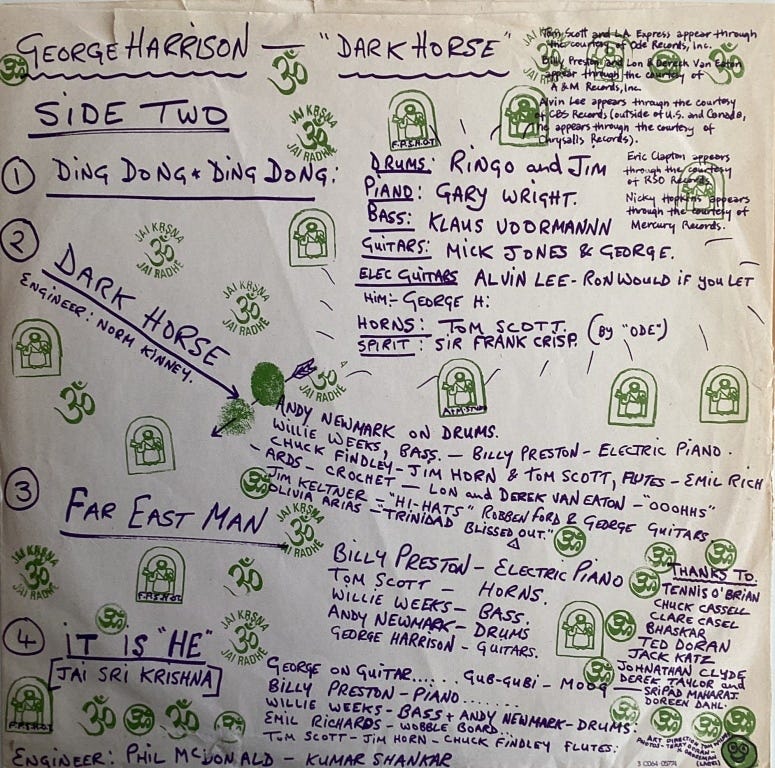 GEORGE HARRISON — "DARK HORSE"
SIDE TWO
Tom Scott and L.A. Express appear through
the courtesy of Ode Records, Inc.
Billy Preston and Lon & Dereck Van Eaton
appear through the courtesy of
A & M Records, Inc
Alvin Lee appears through the courtesy
of CBS Records (outside of U.S. and Canada,
he appears through the courtesy of
Chrysalis Records).
Eric Clapton appears
through the courtesy
of RSO Records
Nicky Hopkins appears
through the courtesy of
Mercury Records.
① DING DONG * DING DONG:
DRUMS: RINGO and JIM
PIANO: GARY WRIGHT.
BASS: KLAUS VOORMANNN
GUITARS: MICK JONES & GEORGE.
ELEC GUITARS ALVIN LEE - RON WOULD IF YOU LET
HIM:- GEORGE H:
HORNS: TOM SCOTT. (BY "ODE")
SPIRIT: SIR FRANK CRISP.
② DARK HORSE
ENGINEER: NORM KINNEY.
ANDY NEWMARK ON DRUMS.
WILLIE WEEKS, BASS. — BILLY PRESTON - ELECTRIC PIANO.
CHUCK FINDLEY - JIM HORN & TOM SCOTT, FLUTES - EMIL RICH
-ARDS - CROCHET — LON and DEREK VAN EATON - "OOOHHS"
JIM KELTNER - "HI-HATS" ROBBEN FORD & GEORGE GUITARS
OLIVIA ARIAS - "TRINIDAD BLISSED OUT."
③ FAR EAST MAN
BILLY PRESTON - ELECTRIC PIANO
TOM SCOTT — HORNS.
WILLIE WEEKS - BASS.
ANDY NEWMARK - DRUMS
GEORGE HARRISON - GUITARS.
THANKS TO.
TENNIS O'BRIAN
CHUCK CASSELL
CLARE CASEL
BHASKAR
TED DORAN
JACK KATZ
JOHNATHAN CLYDE
DEREK TAYLOR and
SRIPAD MAHARAJ.
DOREEN DAHL.
④ IT IS "HE"
[JAI SRI KRISHNA]
GEORGE ON GUITAR...... GUB-GUBI - MOOG
BILLY PRESTON - PIANO.......
WILLIE WEEKS - BASS + ANDY NEWMARK - DRUMS.
EMIL RICHARDS - WOBBLE BOARD..
TOM SCOTT - JIM HORN - CHUCK FINDLEY FLUTES.
ENGINEER: PHIL MCDONALD - KUMAR SHANKAR
3 C064-05774
JAI KRSNA
ॐ
JAI RADHE
JAI KRSNA
ॐ
JAI RADHE
JAI KRSNA
ॐ
JAI RADHE
JAI RADHE
JAI RADHE
JAI KRSNA
ॐ
JAI RADHE
JAI KRSNA
ॐ
JAI RADHE
F.P.S.H.O.T.
F.P.S.H.O.T.
F.P.S.H.O.T.